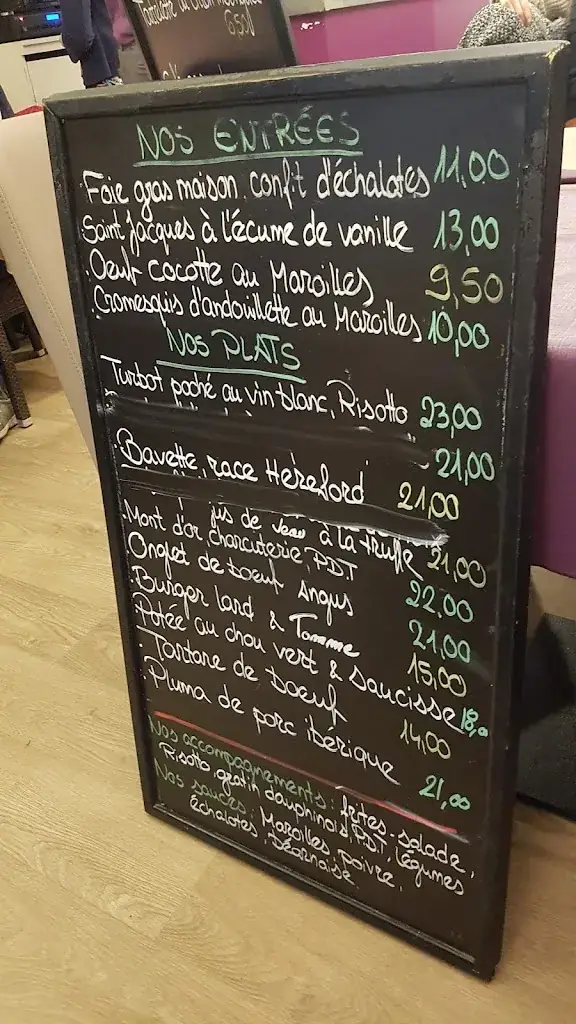 650
NOS ENTRÉES
Foie gras maison, confit d'échalotes 11,00
Saint Jacques à l'écume de vanille 13,00
Oeuf cocotte au Maroilles 9,50
Cromesquis d'andouillette au Maroilles 10,00
NOS PLATS
Turbot poché au vin blanc, Risotto 23,00
21,00
Bavette race Hereford 21,00
jus de veau à la truffe 21,00
Mont d'or, charcuterie, P.D.T 22,00
Onglet de boeuf Angus 21,00
Burger lard & Tomme 15,00
Potée au chou vert & saucisse 18,0
Tartare de boeuf 14,00
Pluma de porc ibérique 21,00
Nos accompagnements: frites-salade,
Risotto, gratin dauphinois, P.D.T, légumes
Nos sauces: Maroilles, poivre,
échalotes, Béarnaise.